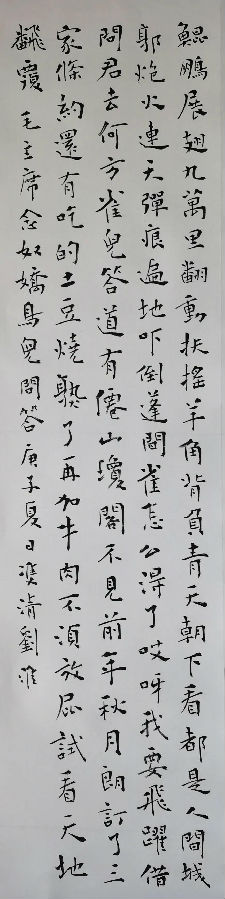 鯤鵬展翅九萬里翻動扶搖羊角背負青天朝下看都是人間城
郭炮火連天彈痕遍地吓倒蓬間雀怎么得了哎呀我要飛躍借
問君去何方雀兒答道有僊山瓊閣不見前年秋月朗訂了三
家條約還有吃的土豆燒熟了再加牛肉不須放屁試看天地
翻覆 毛主席念奴嬌鳥兒問答庚子夏日清劉淮